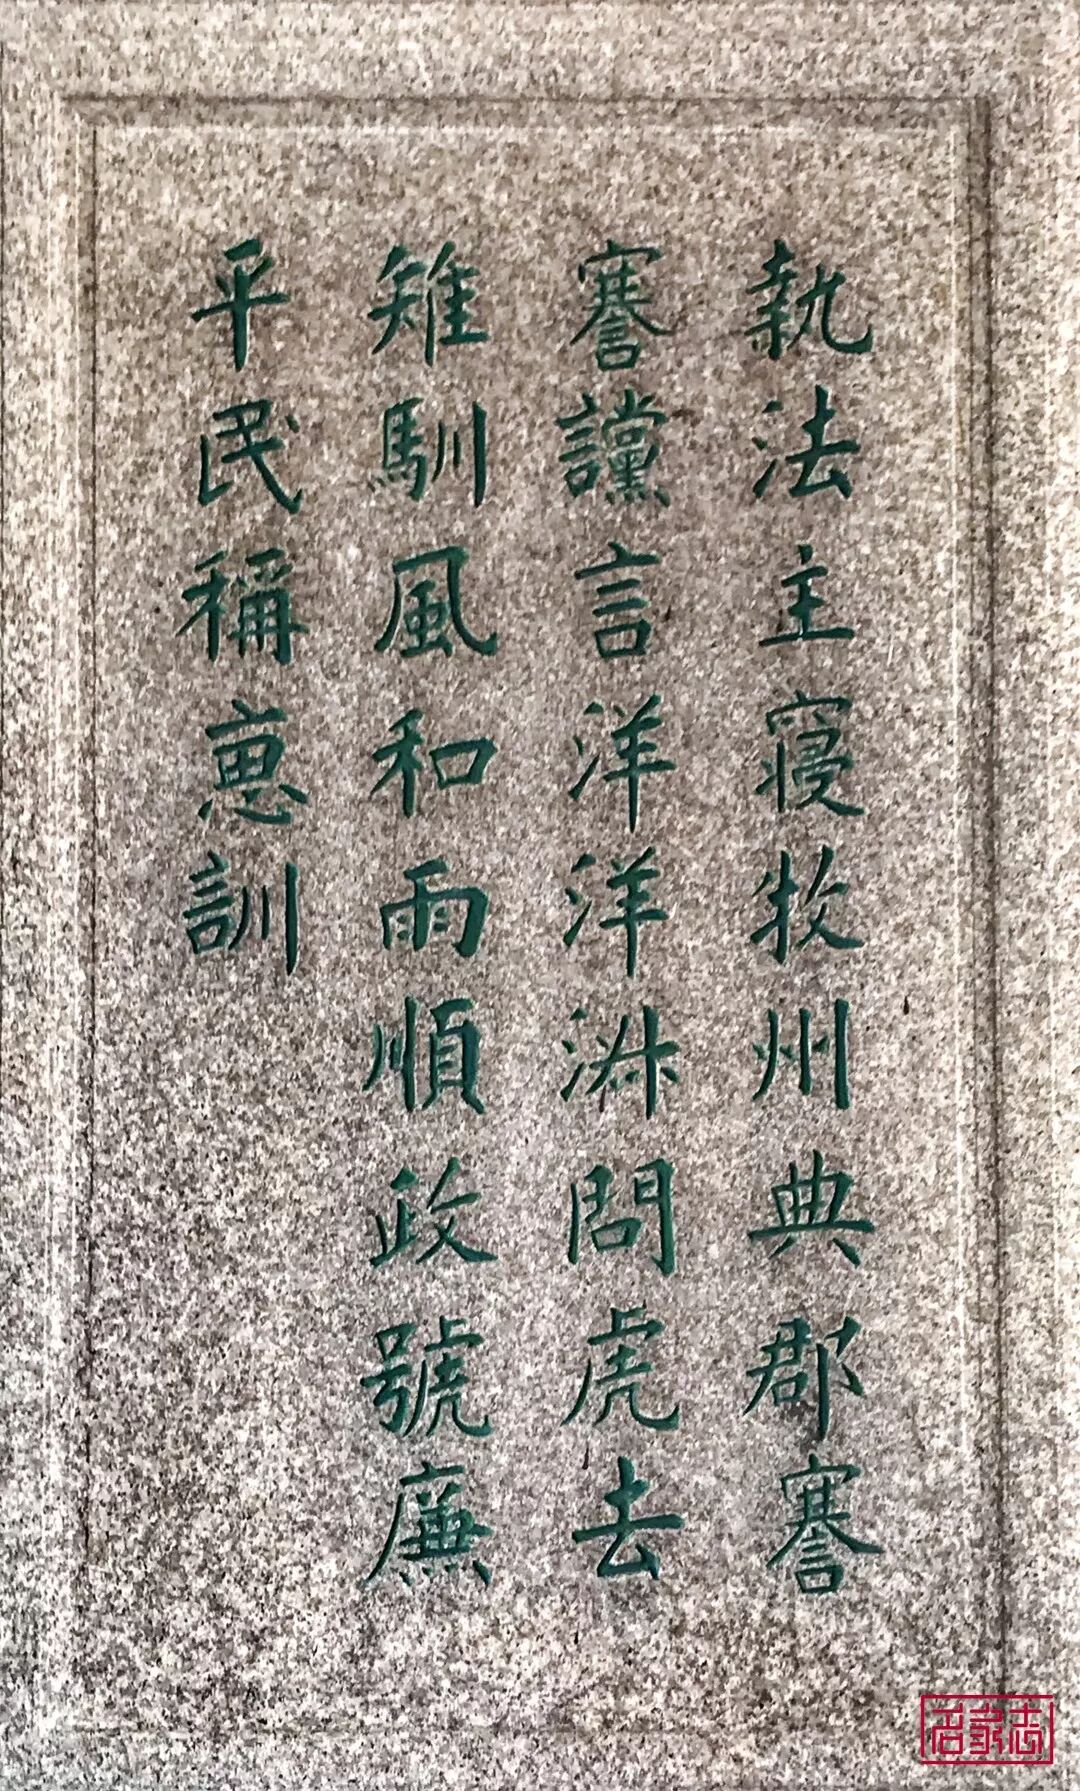 執法主寢牧州典郡謇
謇讜言洋洋淑問虎去
雉馴風和雨順政號廉
平民稱惠訓